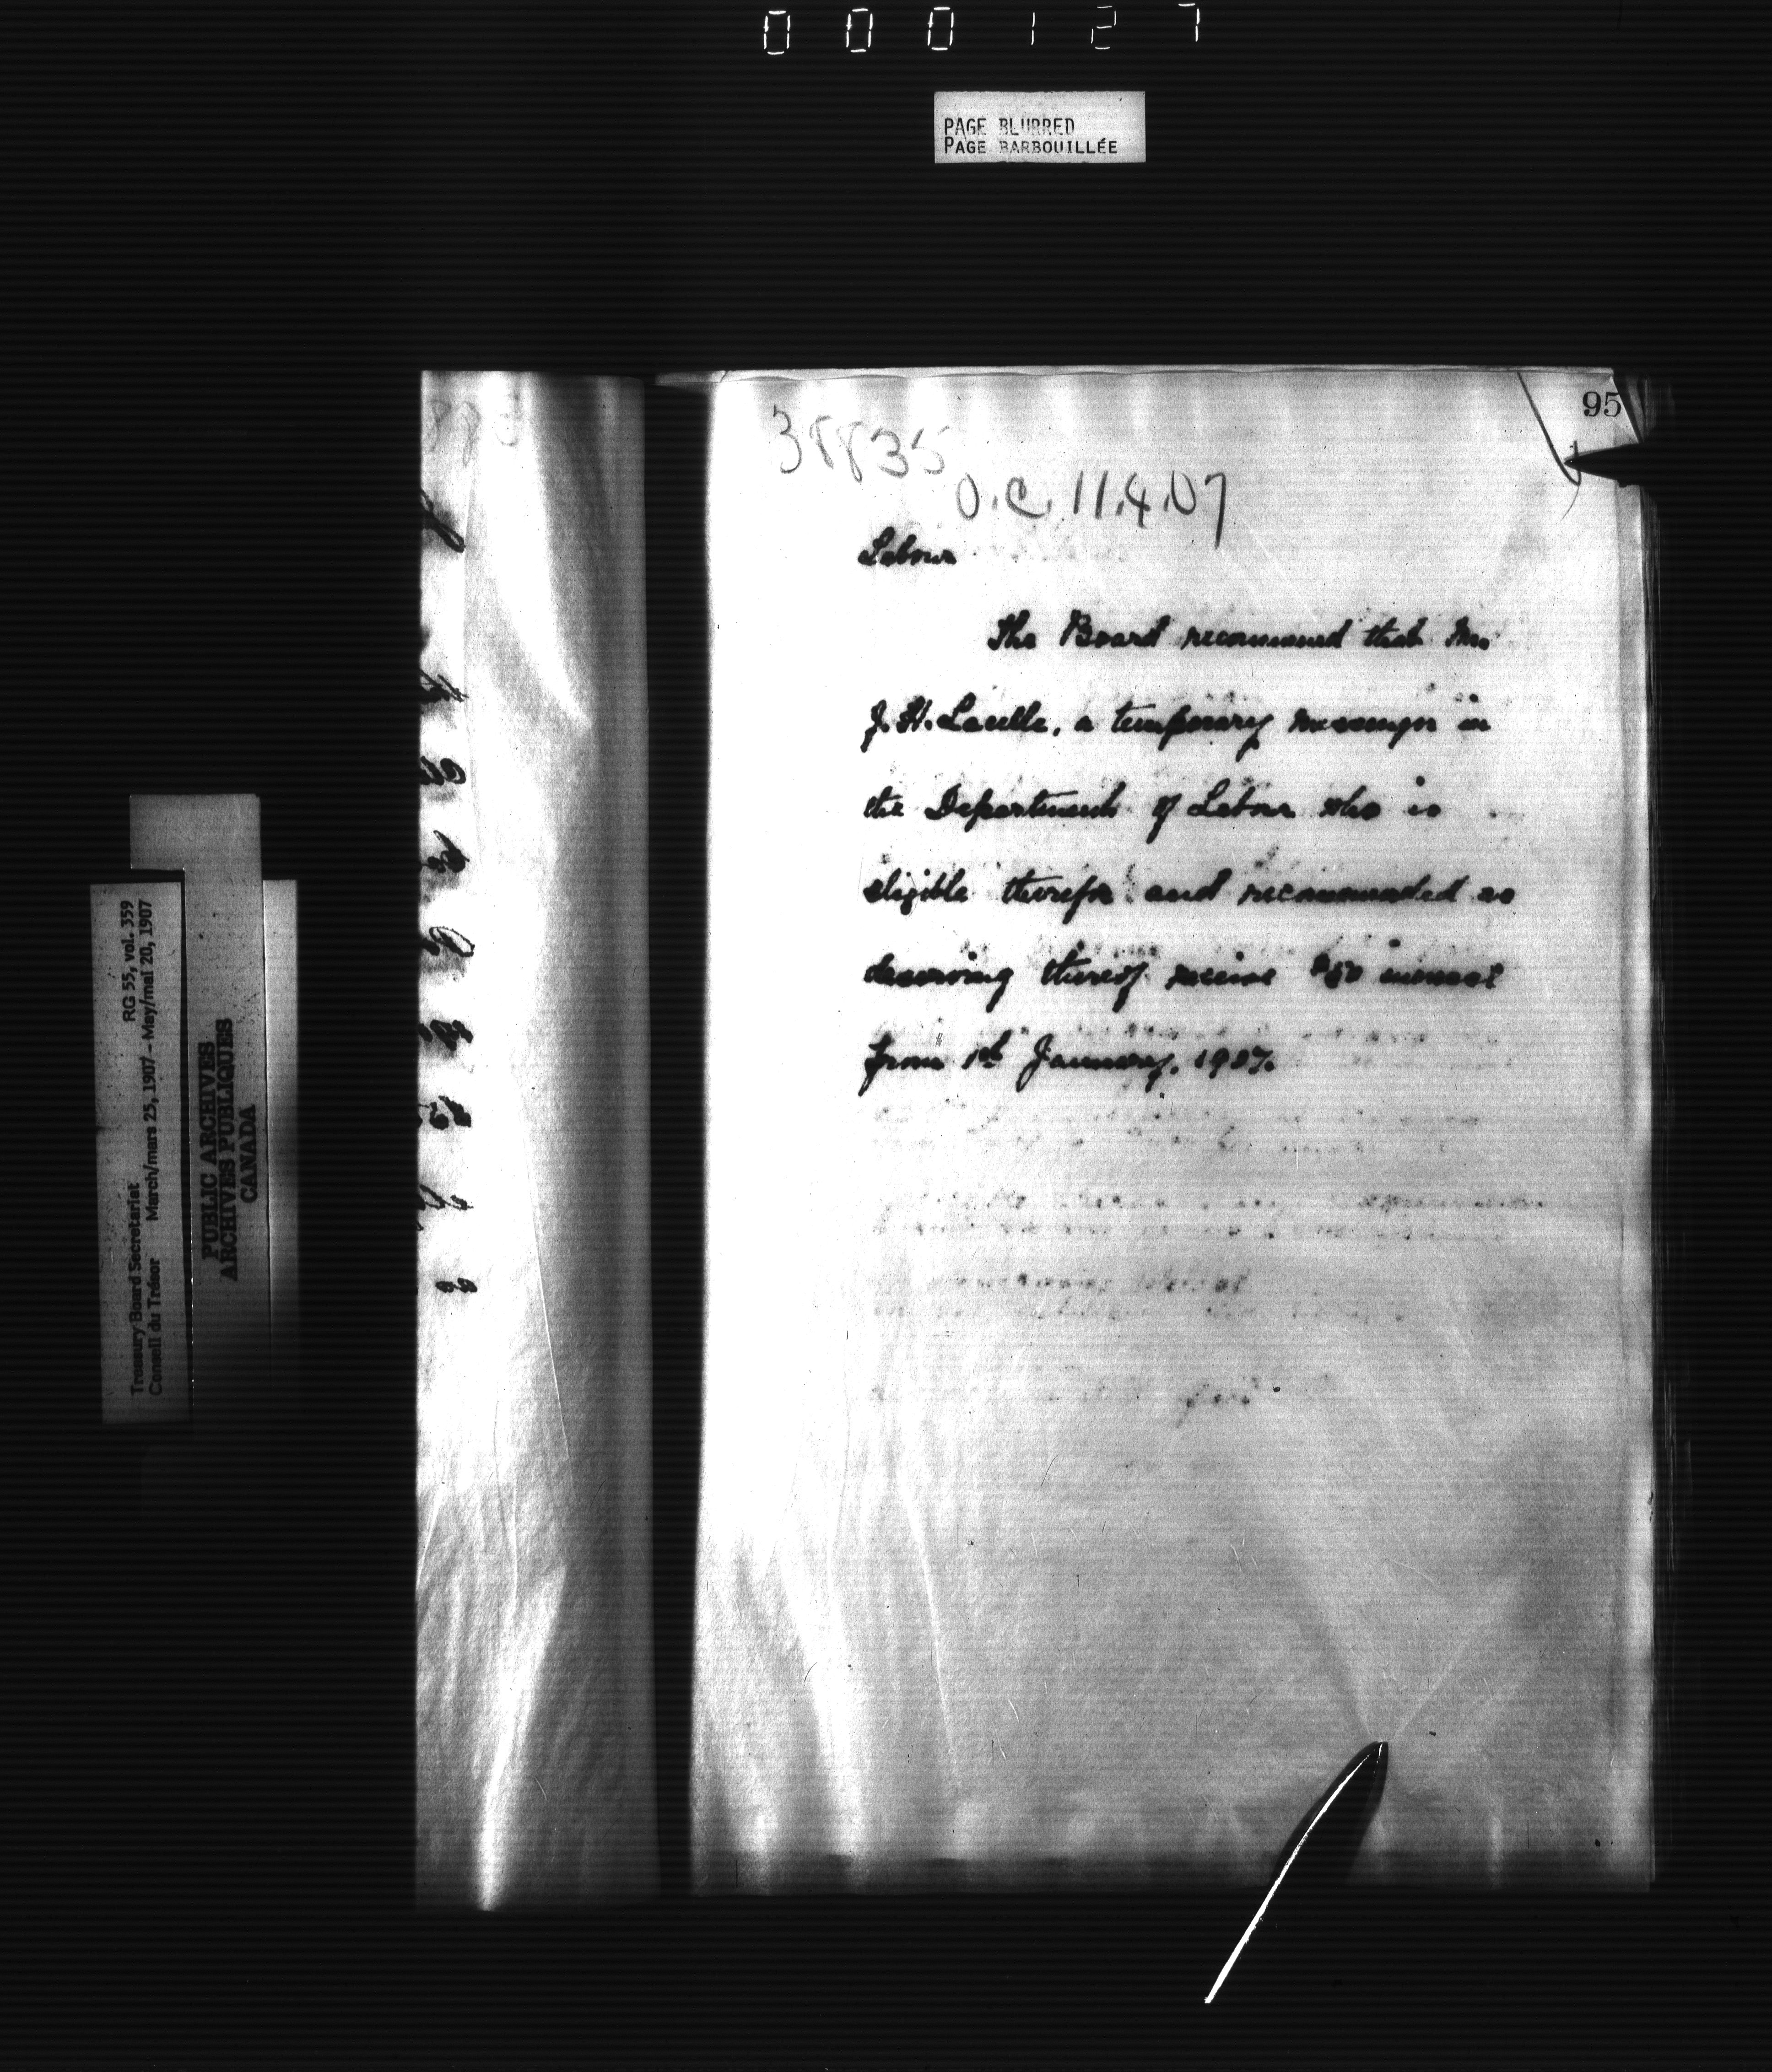 000127
PAGE BLURRED
PAGE BARBOUILLÉE
95
38835
O.C. 11.4.07
Labour
The Board recommend that Mr.
J. H. a temporary messenger in
the Department of Labour who is
eligible therefor and recommended as
deserving thereof receive $50 increase
from 1st January, 1907.
Treasury Board Secretariat RG 55, vol. 359
Conseil du Trésor March/mars 25, 1907 – May/mai 20, 1907
PUBLIC ARCHIVES
ARCHIVES PUBLIQUES
CANADA